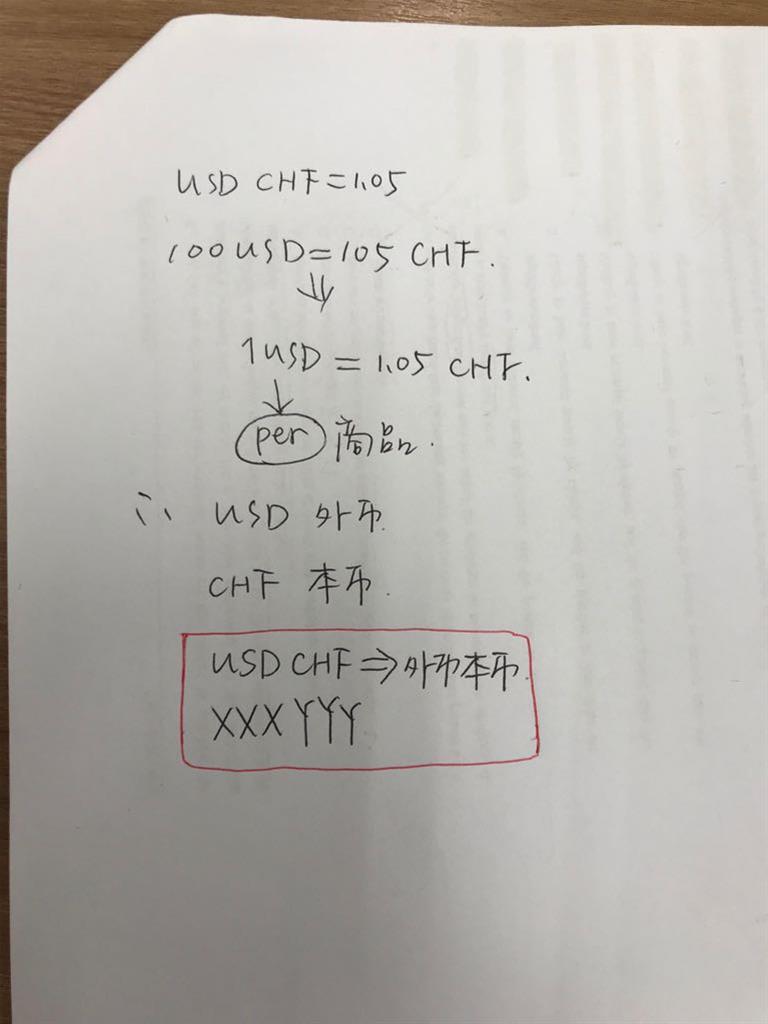 USD CHF=1.05
100USD=105 CHF.
⇓
1USD = 1.05 CHF.
↓
per 商品.
∴ USD 外币
CHF 本币.
USD CHF⇒外币本币.
XXX YYY